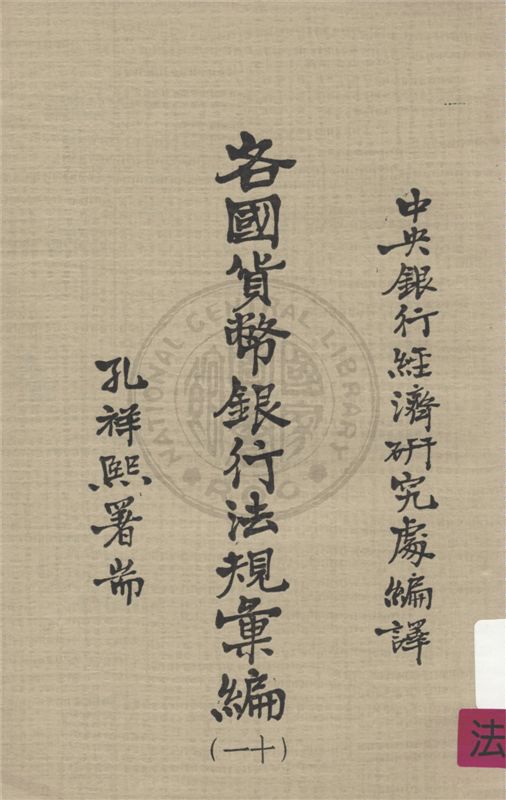 中央銀行經濟研究處編譯
各國貨幣銀行法規彙編
(十一)
孔祥熙署耑
法
NATIONAL CENTRAL LIBRARY